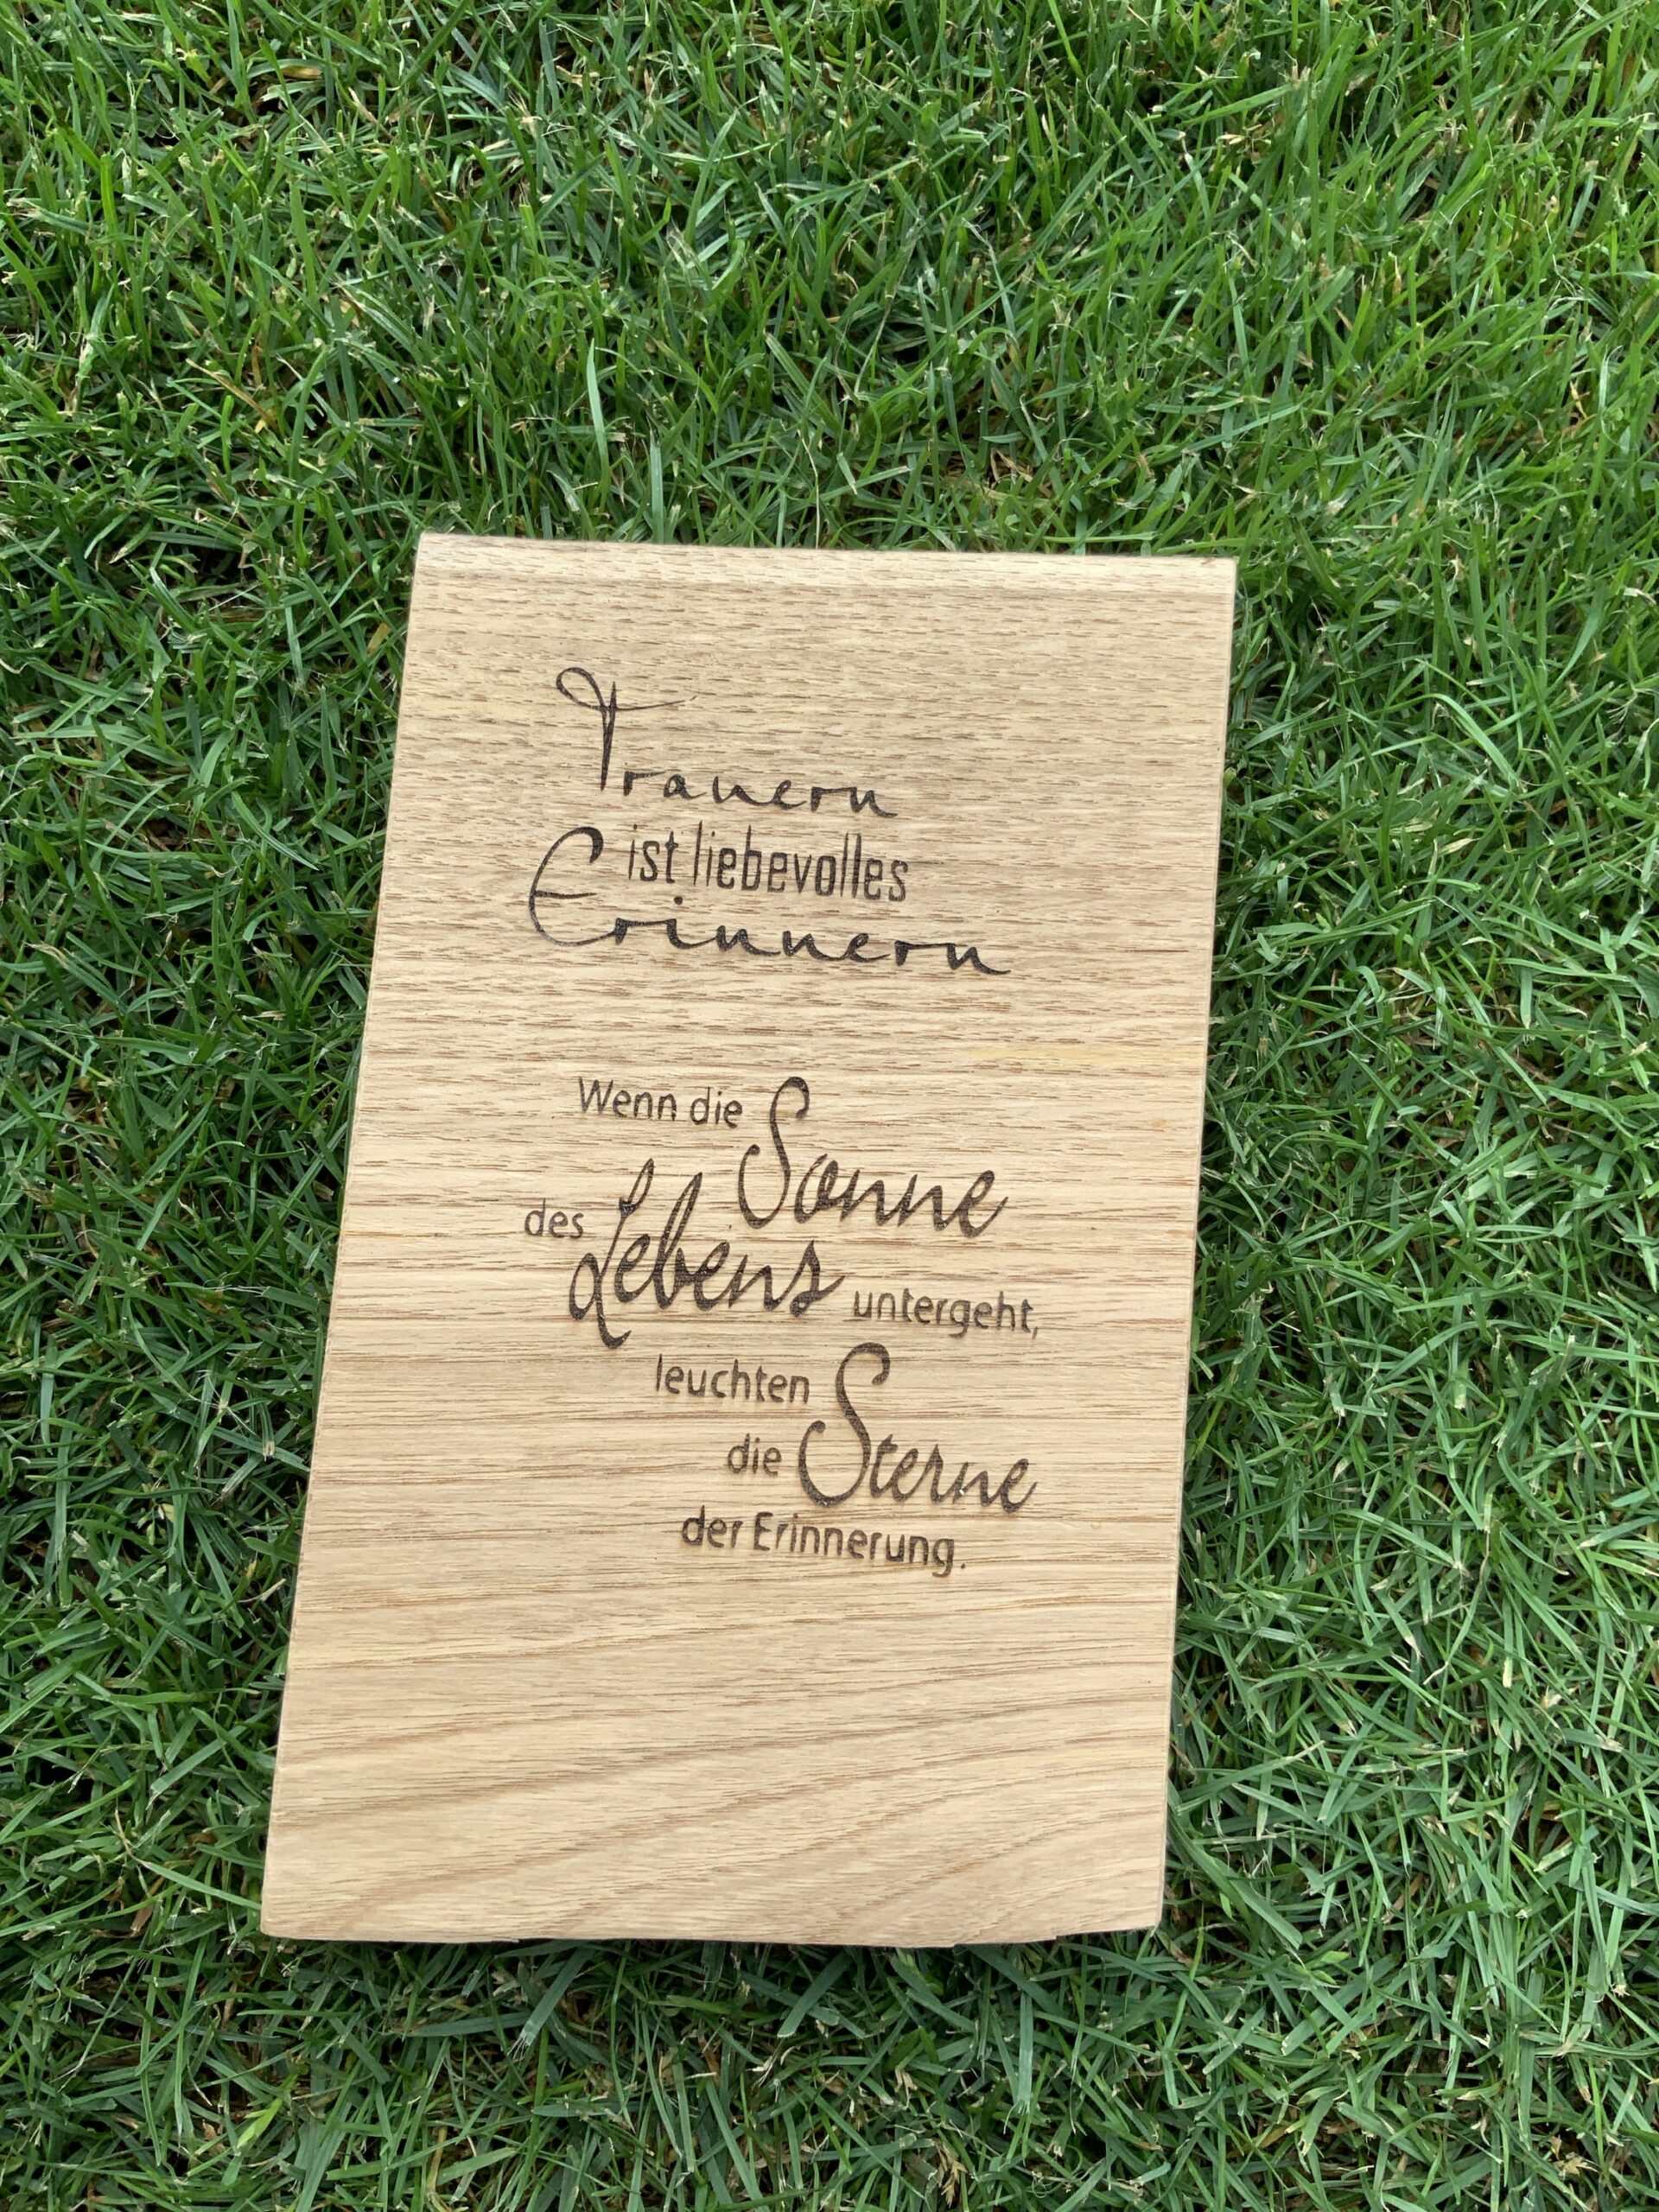 Trauern
ist liebevolles
Erinnern
Wenn die Sonne
des Lebens untergeht,
leuchten
die Sterne
der Erinnerung.